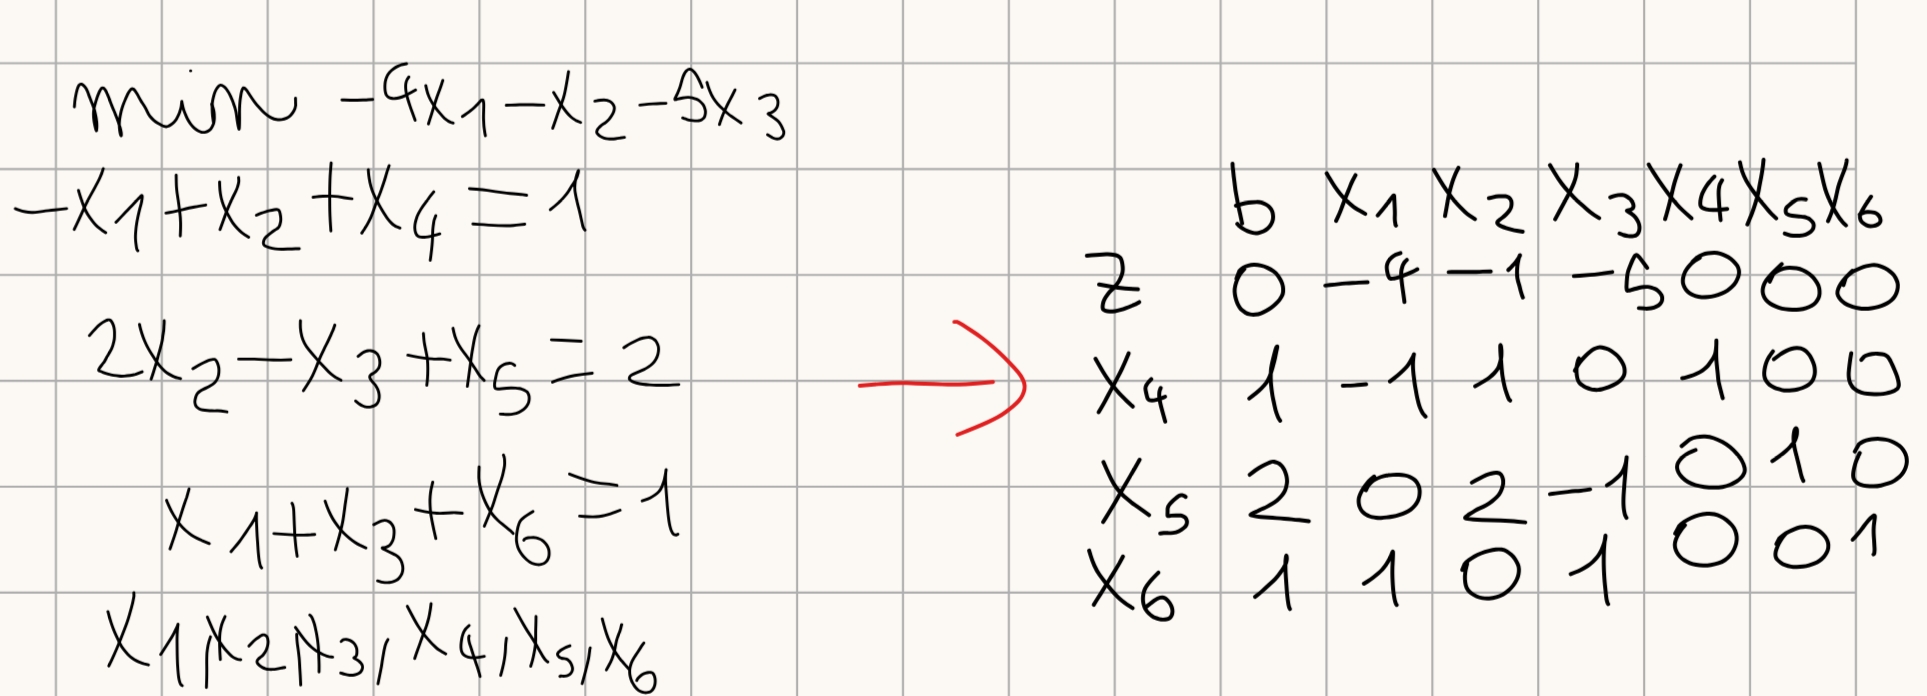 min -4x1-x2-5x3
-x1+x2+x4=1
2x2-x3+x5=2
x1+x3+x6=1
x1,x2,x3,x4,x5,x6
b x1 x2 x3 x4 x5 x6
z 0 -4 -1 -5 0 0 0
x4 1 -1 1 0 1 0 0
x5 2 0 2 -1 0 1 0
x6 1 1 0 1 0 0 1